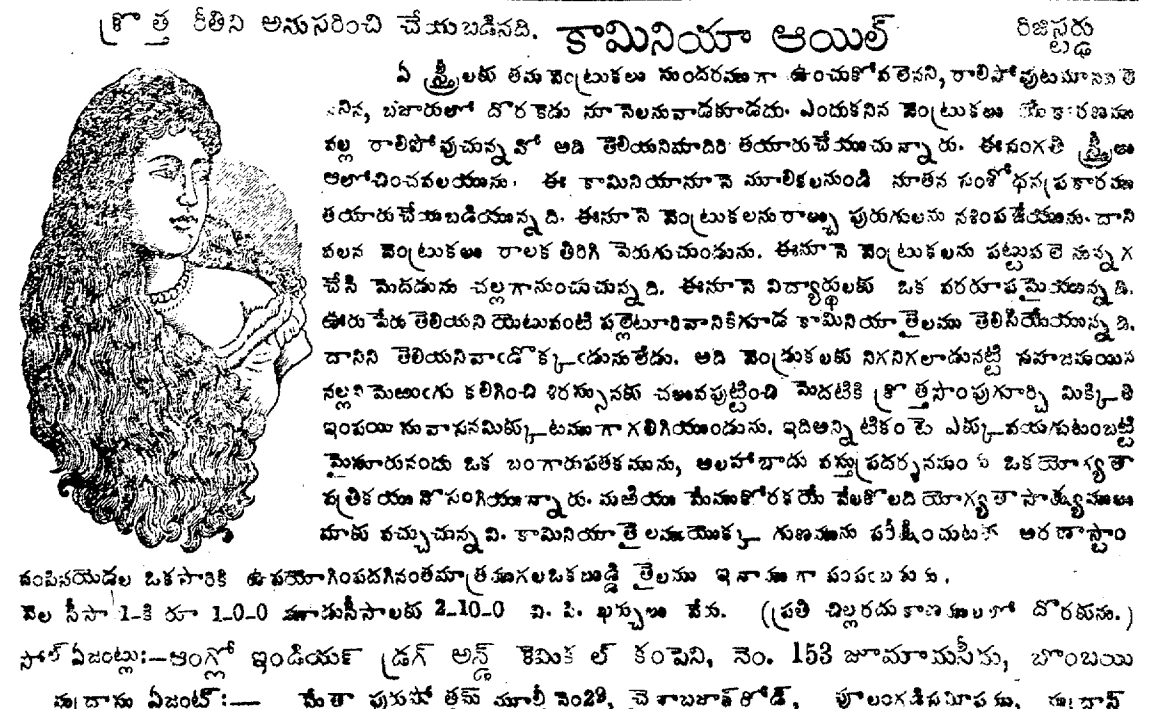 క్రొత్త రీతిని అనుసరించి చేయబడినది. కామినియా ఆయిల్ రిజిస్టర్డు
ఏ స్త్రీలకు తమ వెంట్రుకలు సుందరముగా ఉంచుకోవలెనని, రాలిపోవుట
బజారులో దొరకెడు నూనెలనువాడకూడదు. ఎందుకనిన వెంట్రుకలు యేకారణము
వల్ల రాలిపోవుచున్నవో అది తెలియనిమాదిరి తయారుచేయుచున్నారు. ఈసంగతి స్త్రీలు
ఆలోచించవలయును. ఈ కామినియానూనె మూలికలనుండి నూతన సంశోధనప్రకారము
తయారుచేయబడియున్నది. ఈనూనె వెంట్రుకలనురాల్చు పురుగులను నశింపజేయును. దాని
వలన వెంట్రుకలు రాలక తిరిగి పెరుగుచుండును. ఈనూనె వెంట్రుకలను పట్టువలె నున్నగ
చేసి మెదడును చల్లగానుంచుచున్నది. ఈనూనె విద్యార్థులకు ఒక వరరూపమైయున్నది.
ఊరు పేరు తెలియని యెటువంటి పల్లెటూరివానికిగూడ కామినియా తైలము తెలిసియేయున్నది.
దానిని తెలియనివాఁడొక్కఁడునులేడు. అది వెండ్రుకలకు నిగనిగలాడునట్టి సహజమయిన
నల్లని మెఱుఁగు కలిగించి శిరస్సునకు చలువపుట్టించి మెదటికి క్రొత్తసొంపుగూర్చి మిక్కిలి
ఇంపయి సువాసనమిక్కుటముగాగలిగియుండును. ఇదిఅన్నిటికంటె ఎక్కువయగుటంబట్టి
మైసూరునందు ఒక బంగారుపతకమును, అలహాబాదు వస్తుప్రదర్శనమందు ఒకయోగ్యతా
పత్రికయు నొసంగియున్నారు. మఱియు మేముకోరకయే వేలకొలది యోగ్యతాసాక్ష్యములు
మాకు వచ్చుచున్నవి. కామినియాతైలముయొక్క గుణమును పరీక్షించుటకు అరణాస్టాం
పంపినయెడల ఒకసారికి ఉపయోగింపదగినంతమాత్రముగలఒకబుడ్డి తైలము ఇనాముగా పంపబడును.
వెల సీసా 1-కి రూ 1-0-0 మూడుసీసాలకు 2-10-0 వి. పి. ఖర్చులు వేరు. ((ప్రతి చిల్లరదుకాణములలో దొరకును.)
సోల్ ఏజంట్లు:—ఆంగ్లో ఇండియన్ డ్రగ్ అన్డ్ కెమికల్ కంపెని, నెం. 153 జూమామసీదు, బొంబయి
మద్రాసు ఏజంట్:— మేతా పురుషోత్తమ్ మూల్జీ నెం29, రోడ్, పూలంగడిసమీపము, మద్రాస్